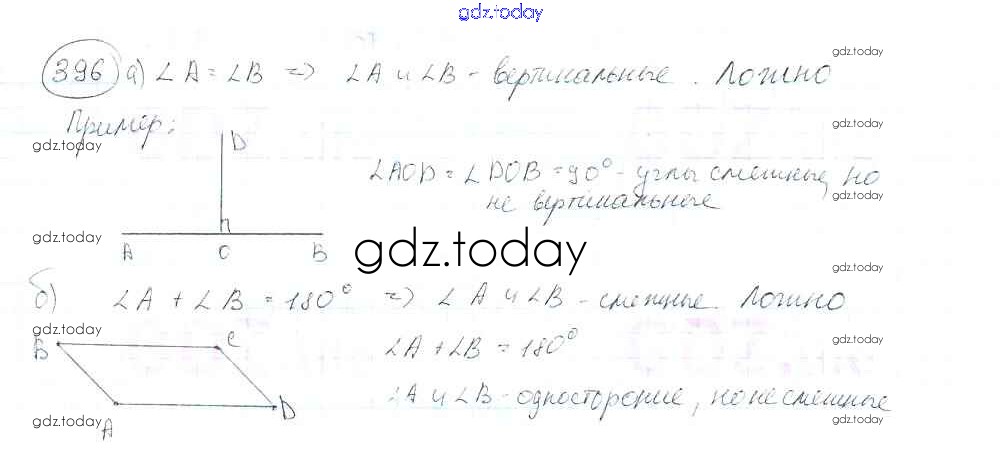 gdz.today
396 а) ∠A = ∠B => ∠A и ∠B - вертикальные. Ложно
gdz.today
Пример:
gdz.today
gdz.today
D
∠AOD = ∠DOB = 90° - углы смежные, но
не вертикальные
gdz.today
gdz.today
A O B
gdz.today
gdz.today
б) ∠A + ∠B = 180° => ∠A и ∠B - смежные. Ложно
gdz.today
gdz.today
B C
∠A + ∠B = 180°
∠A и ∠B - односторонние, но не смежные
A D
gdz.today
gdz.today